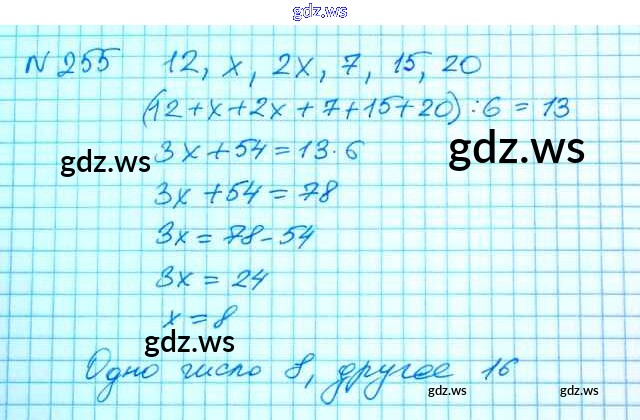 gdz.ws
N 255 12, x, 2x, 7, 15, 20
(12+x+2x+7+15+20):6=13
3x+54=13·6
gdz.ws
gdz.ws
3x+54=78
3x=78-54
3x=24
x=8
gdz.ws
Одно число 8, другое 16
gdz.ws
gdz.ws